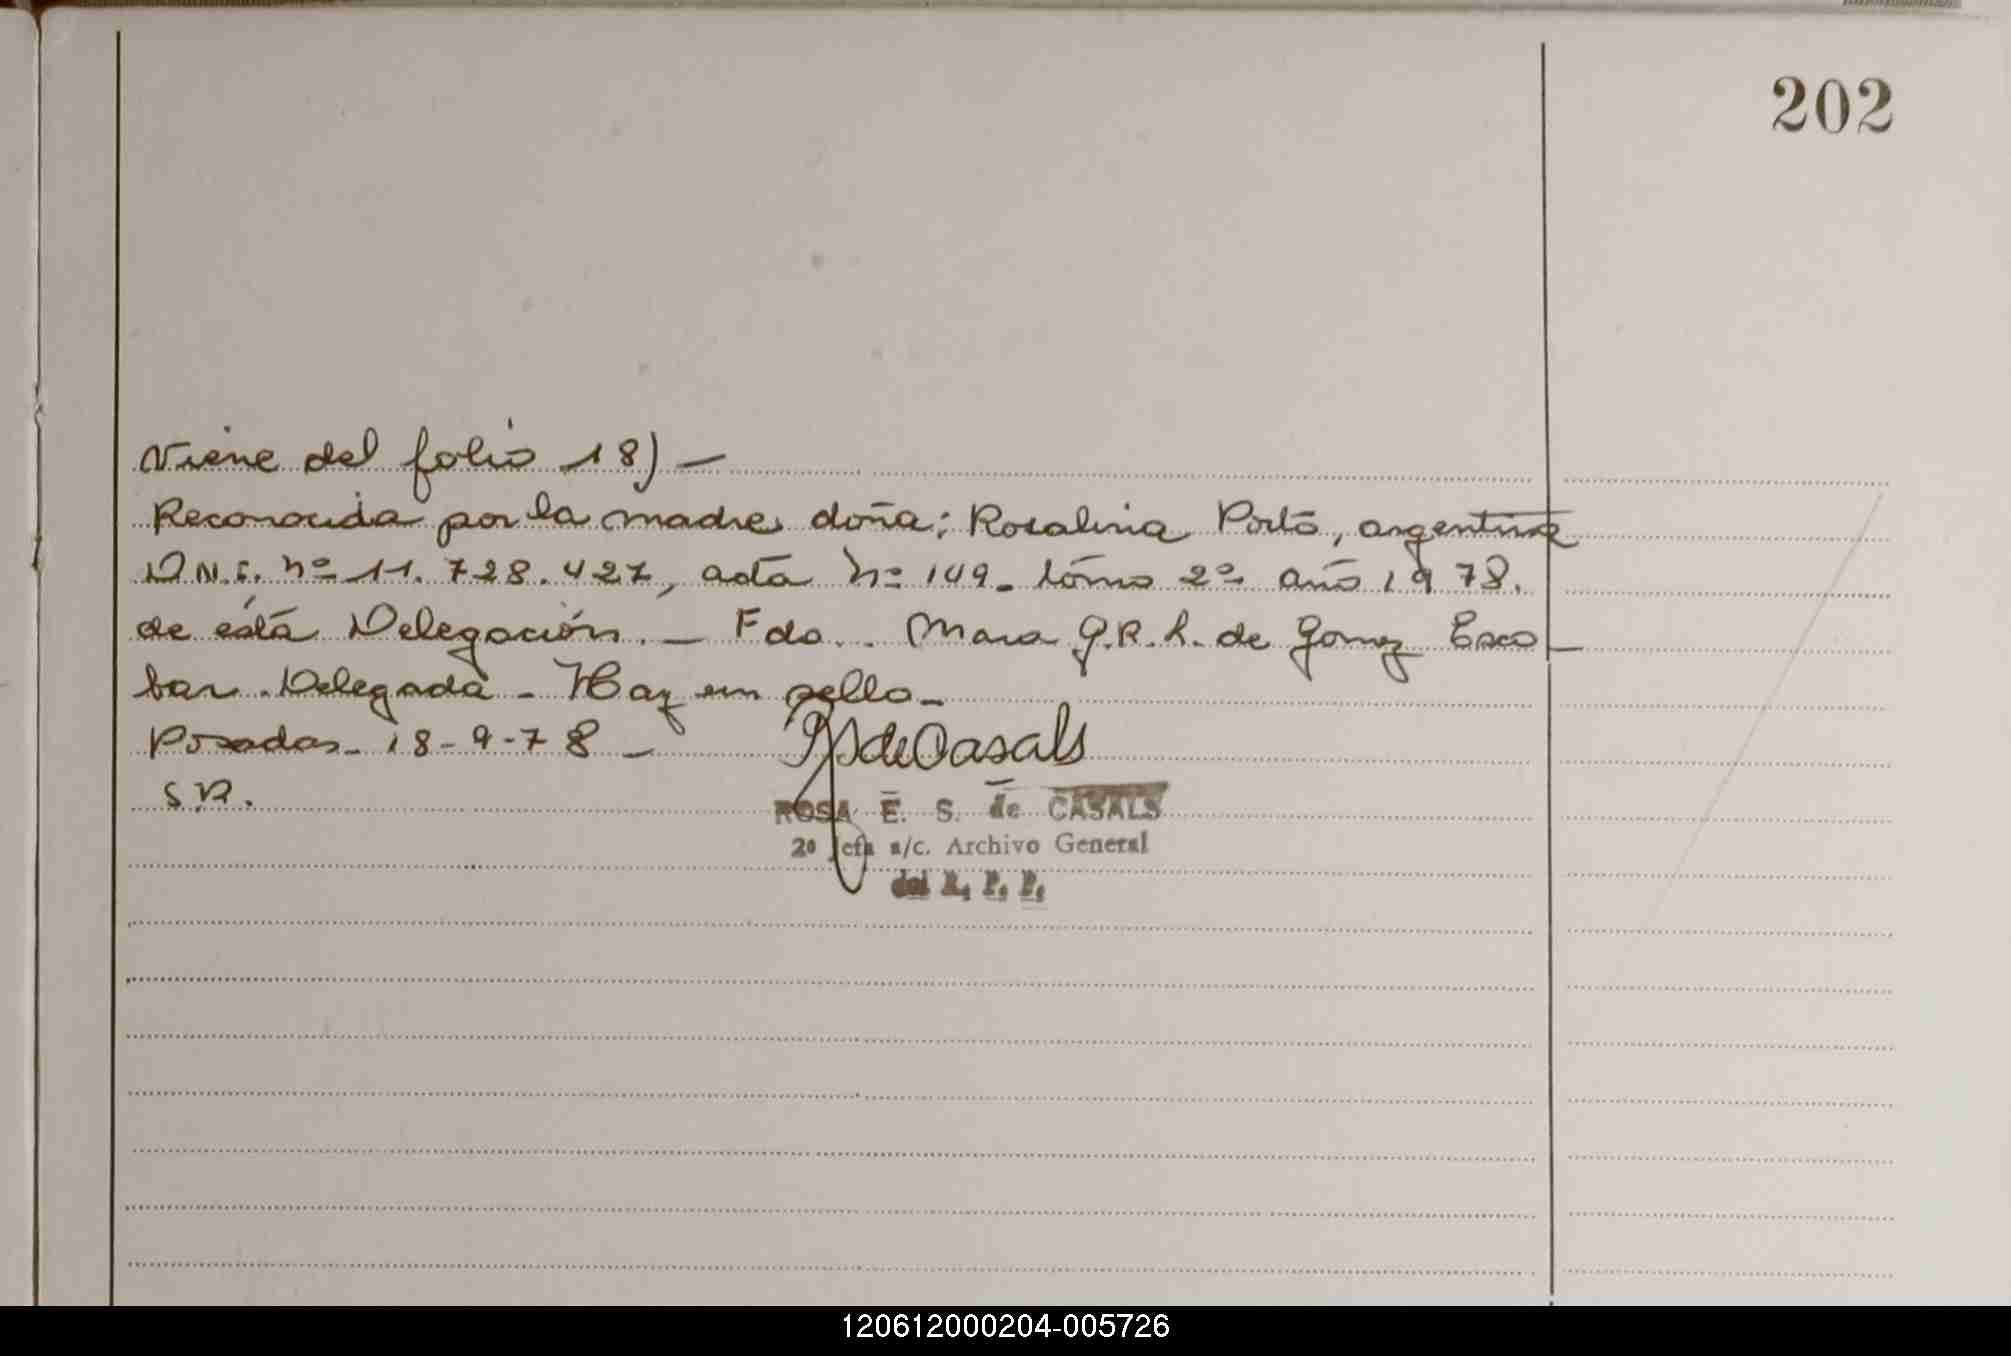 202
Viene del folio 18) —
Reconocida por la madre doña: Rosalina Portó, argentina
D.N.I. nº 11.728.427, acta nº 149 - tomo 2º año 1978.
de ésta Delegación. — Fdo. Mara G.R.L. de Gomez Esco—
bar. Delegada - Hay un sello -
Posadas - 18-9-78 —
S.R.
ROSA E. S. de CASALS
2º Jefa a/c. Archivo General
del R. P. P.
120612000204-005726